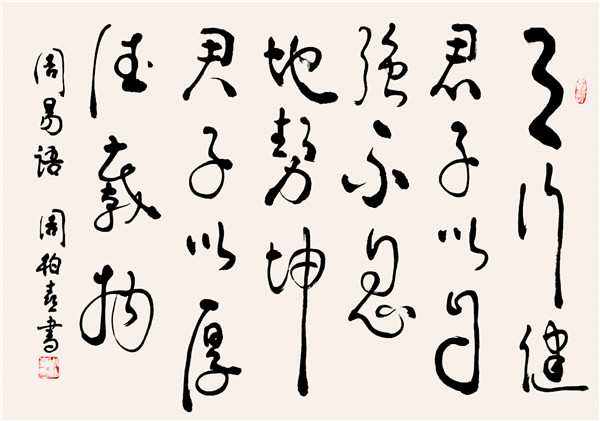 天行健
君子以自
强不息
地势坤
君子以厚
德载物
周易语 周柏春书